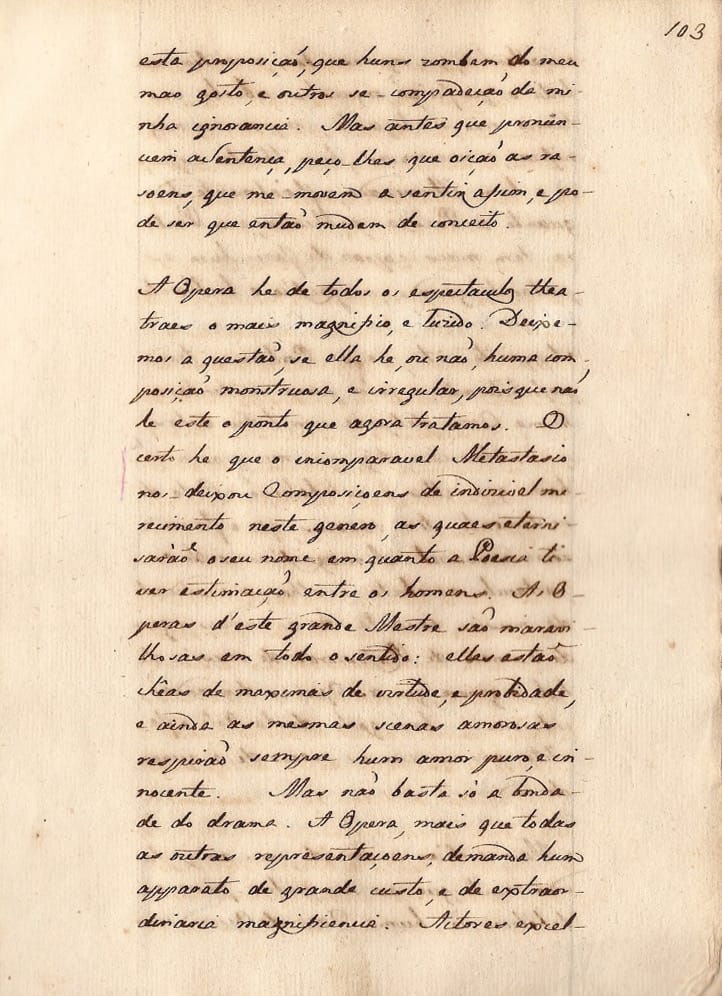 103
esta proposiçaõ, que huns zombem do meu
mao gosto, e outros se compadeçaõ de mi-
nha ignorancia. Mas antes que pronun-
ciem a Sentença, peço-lhes que oiçaõ as ra-
soens, que me movem a sentir assim, e po-
de ser que entaõ mudem de conceito.
A Opera he de todos os espectaculos thea-
traes o mais magnifico, e luzido. Deixe-
mos a questaõ, se ella he, ou naõ, huma com-
posiçaõ monstruosa, e irregular, pois que naõ
he este o ponto que agora tratamos. O
certo he que o incomparavel Metastasio
nos deixou Composiçoens de indizivel me-
recimento neste genero, as quaes eterni-
saràõ o seu nome em quanto a Poesia ti-
ver estimaçaõ entre os homens. As O-
peras d'este grande Mestre saõ maravi-
lhosas em todo o sentido: elles estaõ
chêas de maximas de virtude, e probidade,
e ainda as mesmas scenas amorosas
respiraõ sempre hum amor puro, e in-
nocente. Mas naõ basta só a bonda-
de do drama. A Opera, mais que todas
as outras representaçoens, demanda hum
apparato de grande custo, e de extraor-
dinaria magnificencia. Actores excel-